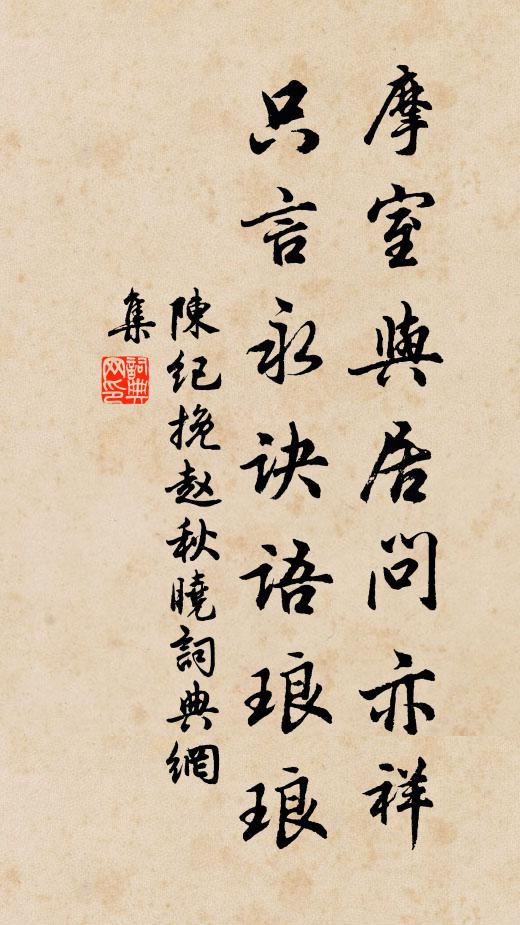 摩室與居問亦祥
只言永訣語琅琅
陳纪挽赵秋曉詞典網
集
詞典
网印